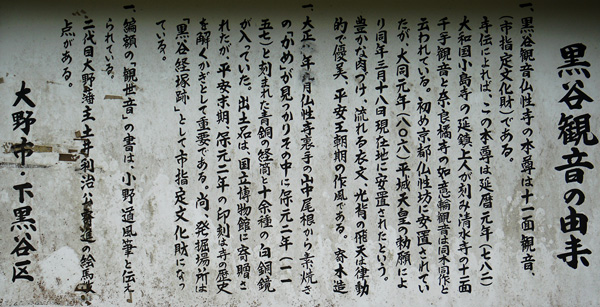 黒谷観音の由来
一、黒谷観音仏性寺の本尊は十一面観音、
(市指定文化財)である。
寺伝によれば、この本尊は延暦元年(七八二)
大和国小島寺の延鎮上人が刻み清水寺の十一面
千手観音と奈良橘寺の如意輪観音は同木同作と
云われている。初め京都仏性坊に安置されてい
たが、大同元年(八〇六)平城天皇の勅願によ
り同年三月十八日現在地に安置されたという。
豊かな肉づけ、流れる衣文、光背の飛天は律動
的で優美、平安王朝期の作風である。寄木造
一、大正 年 月仏性寺裏手の山中尾根から素焼き
の「かめ」が見つかりその中に保元二年(一一
五七)と刻まれた青銅の経筒や十余種の白銅鏡
が入っていた。出土品は、国立博物館に寄贈さ
れたが平安末期、保元二年の印刻は寺の歴史
を解くかぎとして重要である。尚、発掘場所は
「黒谷経塚跡」として市指定文化財になっ
ている。
一、編額の「観世音」の書は、小野道風筆と伝え
られている。
二代目大野藩主土井利治公寄進の絵馬
点がある。
大野市・下黒谷区